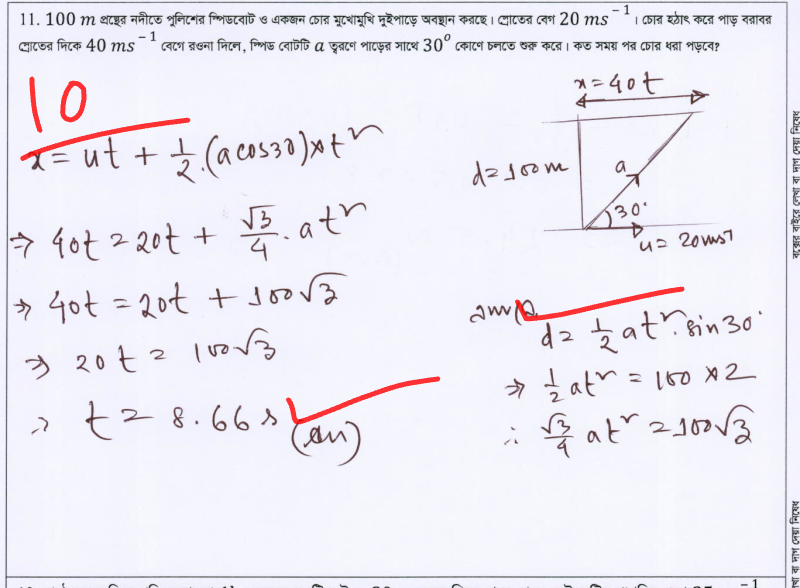 11. 100 m প্রস্থের নদীতে পুলিশের স্পিডবোট ও একজন চোর মুখোমুখি দুইপাড়ে অবস্থান করছে। স্রোতের বেগ 20 ms⁻¹ । চোর হঠাৎ করে পাড় বরাবর
স্রোতের দিকে 40 ms⁻¹ বেগে রওনা দিলে, স্পিড বোটটি a ত্বরণে পাড়ের সাথে 30° কোণে চলতে শুরু করে। কত সময় পর চোর ধরা পড়বে?
10
x = ut + 1/2.(a cos30)×t²
⇒ 40t = 20t + √3/4 . at²
⇒ 40t = 20t + 100√3
⇒ 20t = 100√3
∴ t = 8.66 s (Ans)
x = 40t
d = 100m
a
30°
u = 20ms⁻¹
d = 1/2 at². sin30°
⇒ 1/2 at² = 100 × 2
∴ √3/4 at² = 100√3
বক্সের বাইরে লেখা বা দাগ দেয়া নিষেধ
বা দাগ দেয়া নিষেধ